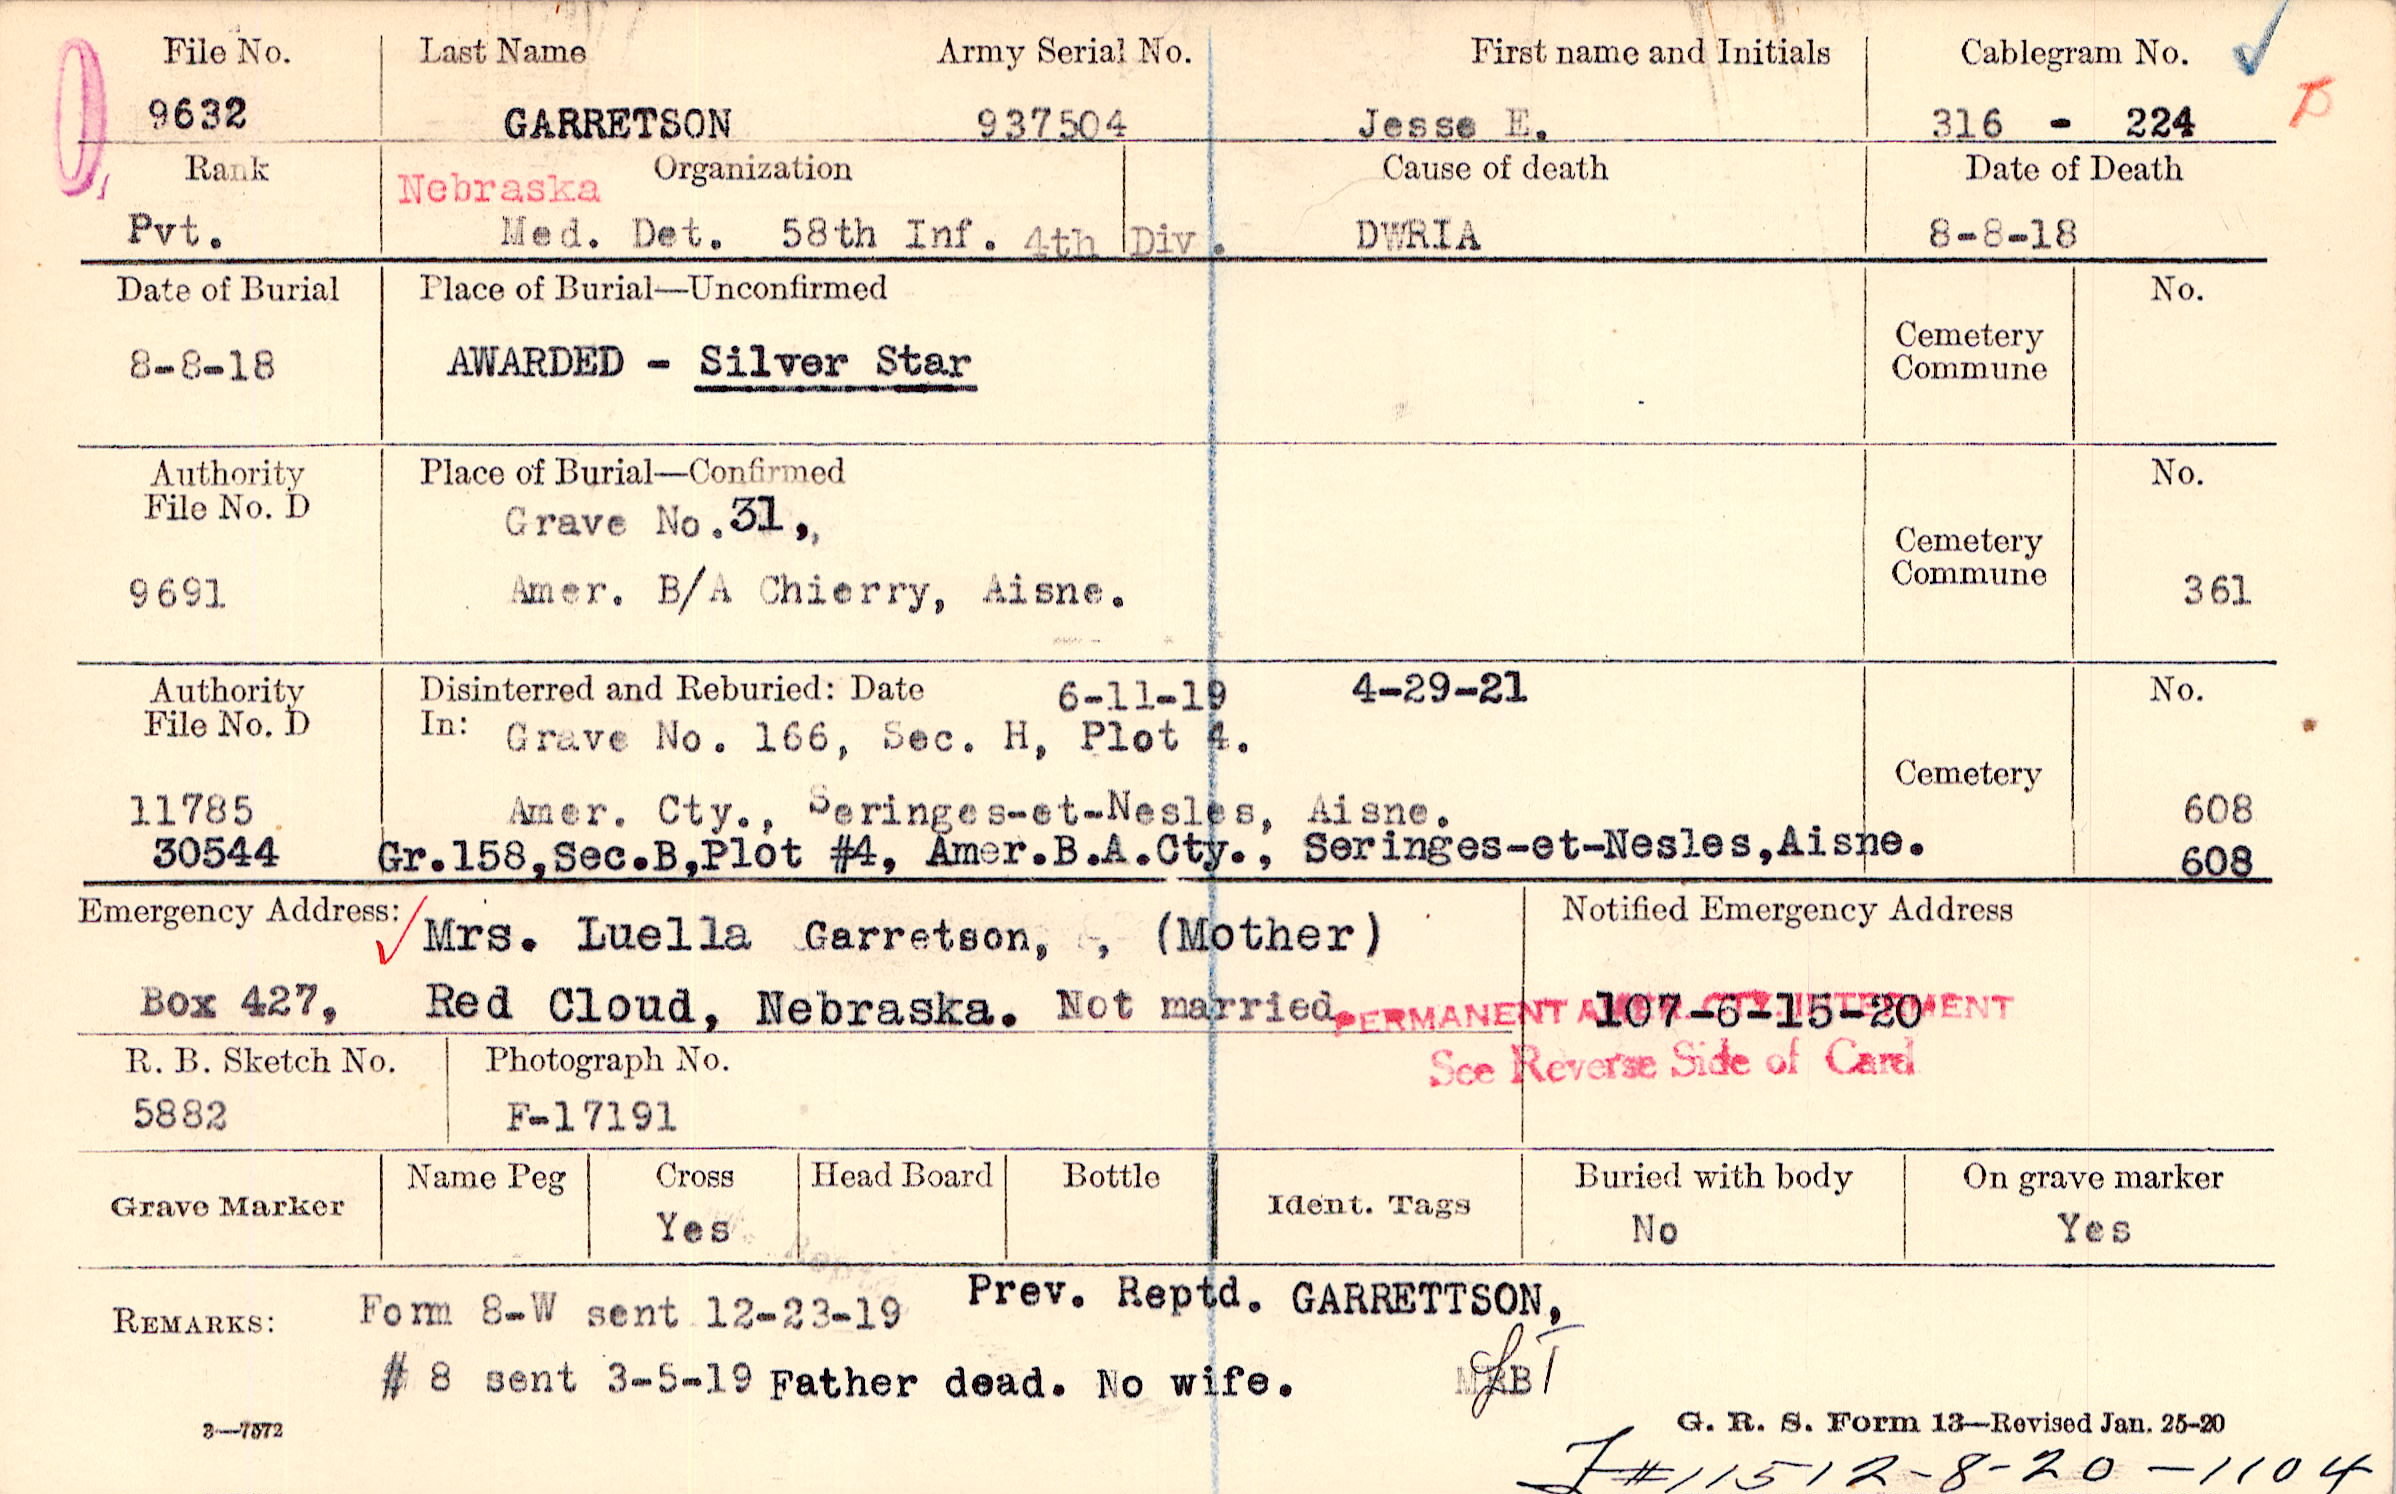 File No. Last Name Army Serial No. First name and Initials Cablegram No.
9632 GARRETSON 937504 Jesse E. 316 - 224
Rank Organization Cause of death Date of Death
Nebraska
Pvt. Med. Det. 58th Inf. 4th Div. DWRIA 8-8-18
Date of Burial Place of Burial—Unconfirmed No.
8-8-18 AWARDED - Silver Star Cemetery
Commune
Authority Place of Burial—Confirmed No.
File No. D Grave No. 31,,
Cemetery
Commune
9691 Amer. B/A Chierry, Aisne. 361
Authority Disinterred and Reburied: Date 6-11-19 4-29-21 No.
File No. D In: Grave No. 166, Sec. H, Plot 4.
Cemetery
11785 Amer. Cty., Seringes-et-Nesles, Aisne. 608
30544 Gr.158,Sec.B,Plot #4, Amer.B.A.Cty., Seringes-et-Nesles,Aisne. 608
Emergency Address: Mrs. Luella Garretson, , (Mother) Notified Emergency Address
Box 427, Red Cloud, Nebraska. Not married 107-6-15-20
PERMANENT
See Reverse Side of Card
R. B. Sketch No. Photograph No.
5882 F-17191
Grave Marker Name Peg Cross Head Board Bottle Ident. Tags Buried with body On grave marker
Yes No Yes
REMARKS: Form 8-W sent 12-23-19 Prev. Reptd. GARRETTSON,
# 8 sent 3-5-19 Father dead. No wife.
3—7572 G. R. S. Form 13—Revised Jan. 25-20
#11512-8-20-1104